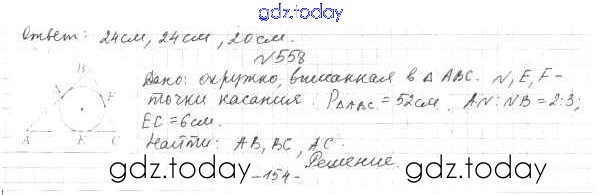 gdz.today
Ответ: 24см, 24см, 20см.
N558
Дано: окружно, вписанная в Δ ABC. N, E, F-
точки касания. PΔABC = 52см. AN:NB=2:3;
EC=6см.
Найти: AB, BC, AC.
Решение.
B
N
F
A
E
C
-154-
gdz.today
gdz.today